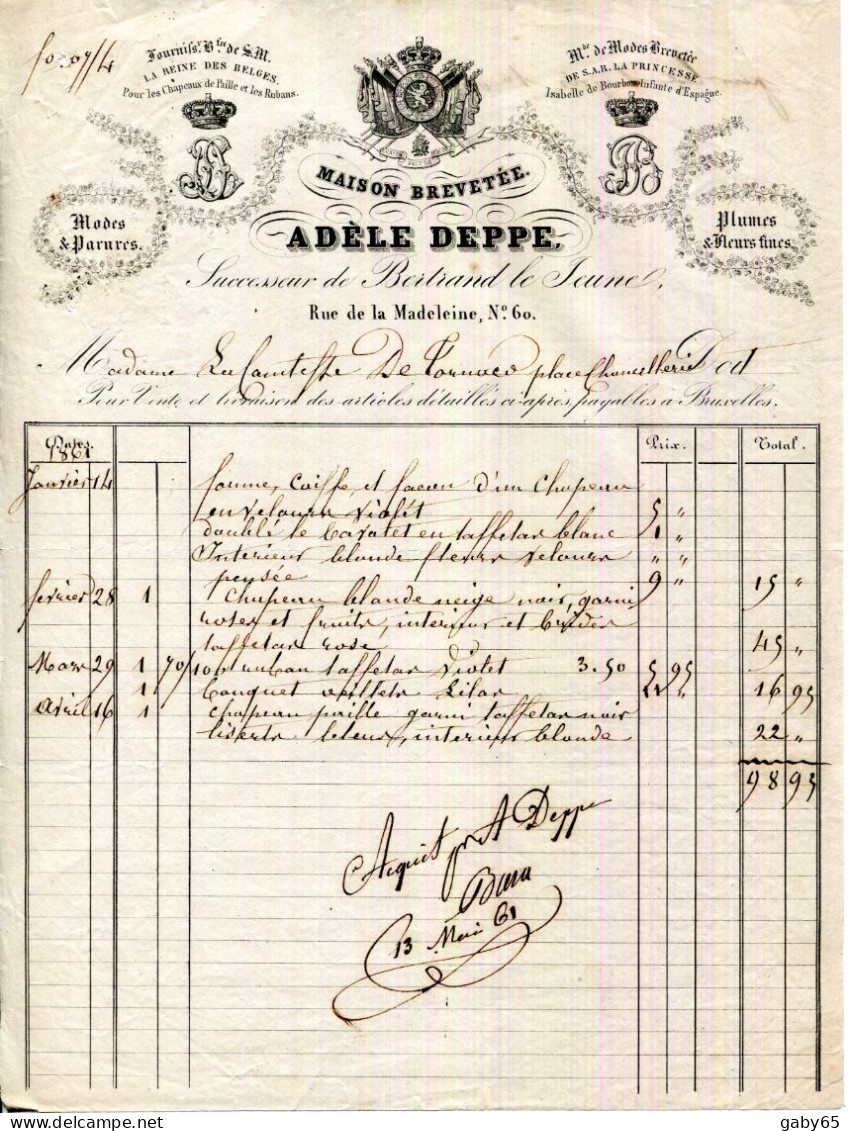 Fournissr. Bté. de S.M.
LA REINE DES BELGES.
Pour les Chapeaux de Paille et les Rubans.
Mde. de Modes Brevetée
DE S.A.R. LA PRINCESSE
Isabelle de Bourbon, Infante d'Espagne.
MAISON BREVETÉE.
Modes
& Parures.
Plumes
& fleurs fines.
ADÈLE DEPPE,
Successeur de Bertrand le Jeune,
Rue de la Madeleine, No. 60.
Madame La Comtesse De place Chancellerie Doit
Pour Vente et livraison des articles détaillés ci-après, payables à Bruxelles.
Dates. Prix. Total.
1861
Janvier 14 forme, coiffe, et façon d'un chapeau
en velours violet 5 "
doublé le bavolet en taffetas blanc 1
Interieur blonde fleurs velours " "
pensée 9 " 15 "
fevrier 28 1 chapeau blonde neige noir, garni
roses et fruits, interieur et brides
taffetas rose 45 "
Mars 29 1 70/100 ruban taffetas violet 3.50 5 95
1 bouquet lilas 16 95
Avril 16 1 chapeau paille garni taffetas noir
liserts bleus, interieur blonde 22 "
98 95
Acquit pr A Deppe
13 Mai 61
gaby65